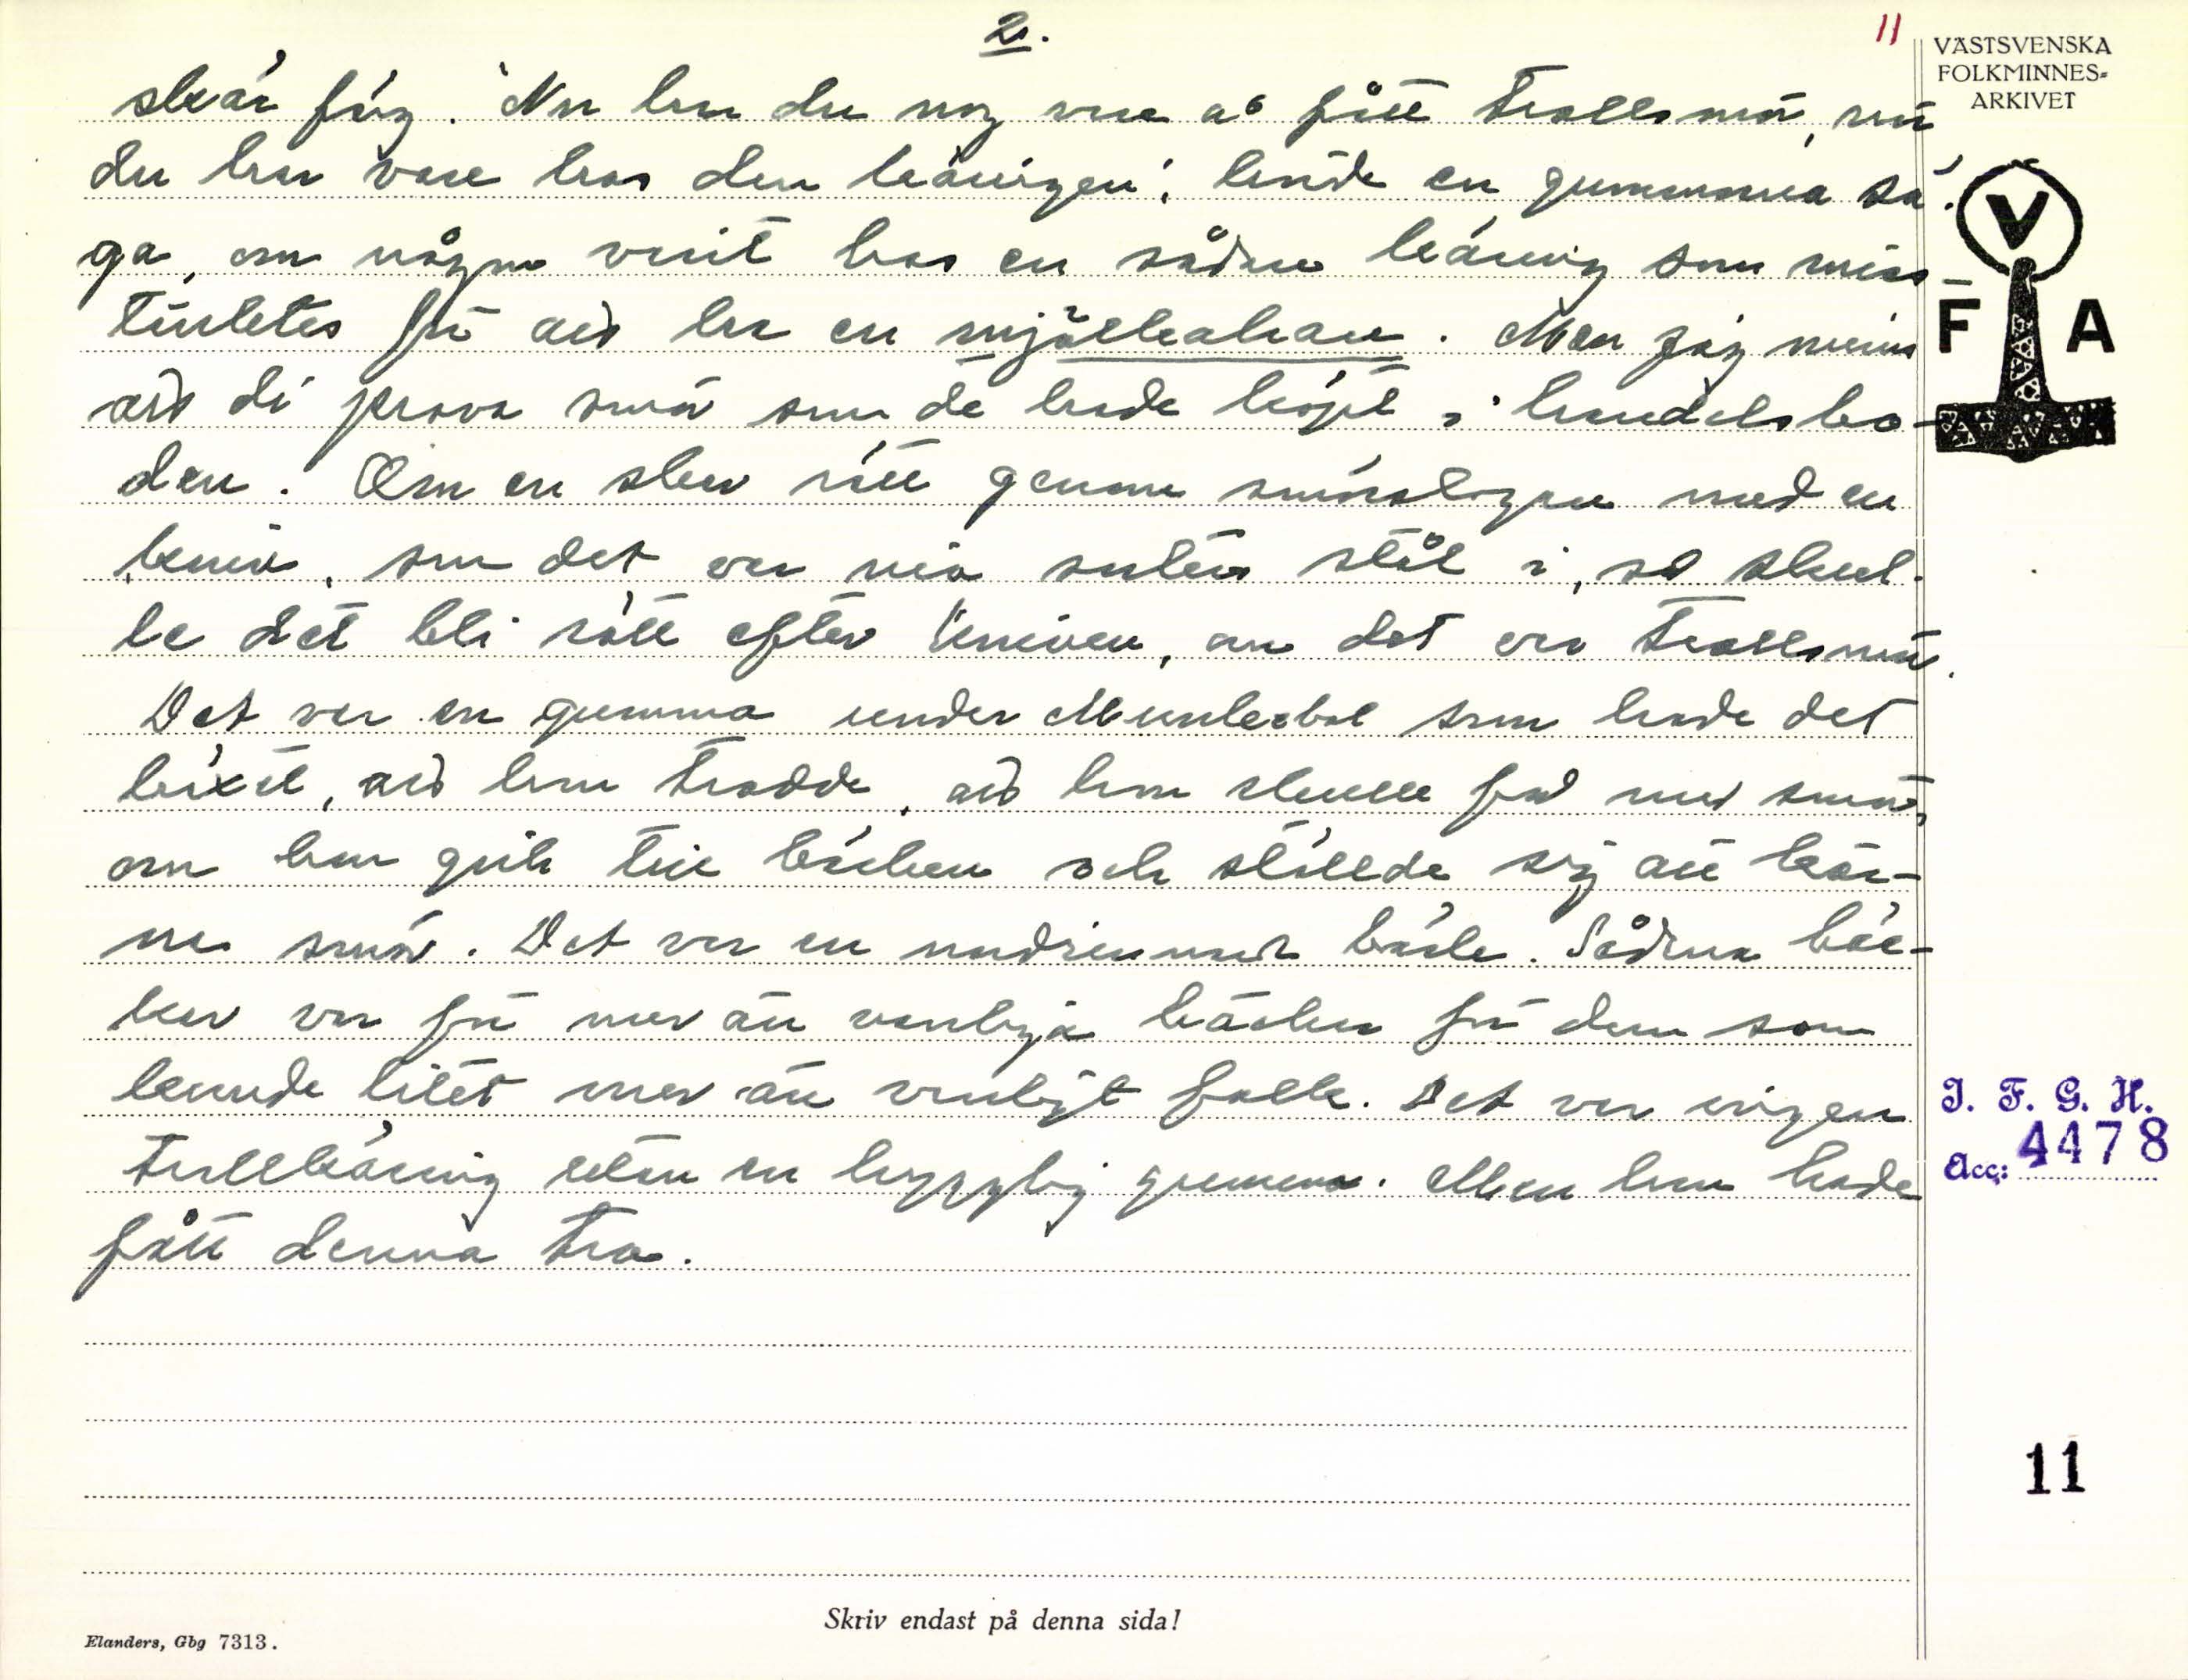 2.
11
VÄSTSVENSKA
FOLKMINNES-
ARKIVET
skär jag. "Nu har du nog vae å fått trollsmör, nä
du har vare hos den käringen", hende en gummorna sä-
ga, om någon varit hos en sådan käring som miss-
tänktes för att ha en mjölkahare. Men jag minns
att di prova smör som de hade köpt i handelsbo-
den. Om en skar rätt genom smörstigen med en
kniv, som det var nia sorters stål i, så skul-
le det bli rött efter kniven, om det var trollsmör.
Det var en gumma under Munkebol som hade det
häxet, att hon trodde, att hon skulle få mer smör,
om hon gick till bäcken och ställde sig att kär-
na smör. Det var en nordrinnande bäck. Sådana bäc-
kar var för mer än vanliga bäckar för dem som
kunde litet mer än vanligt folk. Det var ingen
trollkäring utan en hygglig gumma. Men hon hade
fått denna tro.
V
F A
I. F. G. H.
Acc: 4478
11
Skriv endast på denna sida!
Elanders, Gbg 7313.